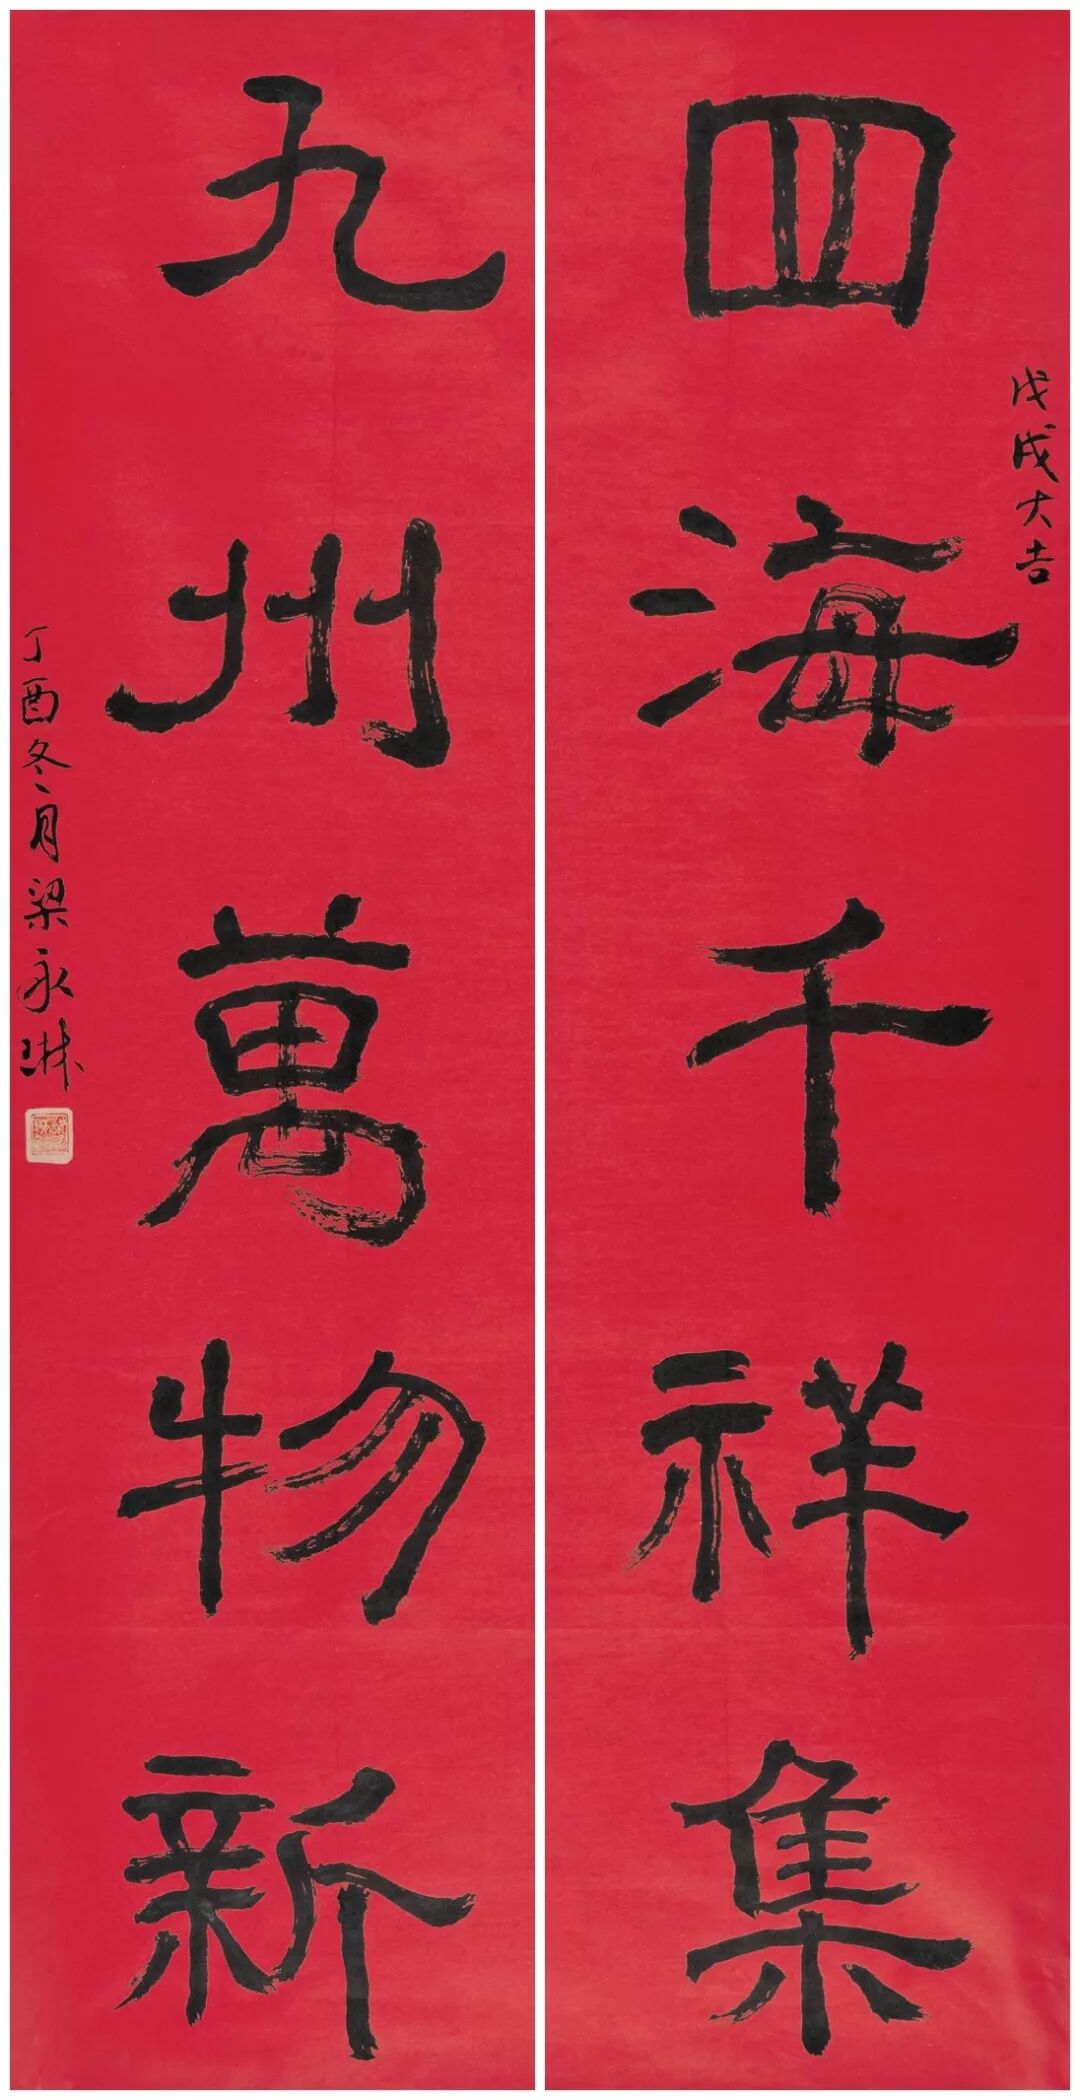 戊戌大吉
四海千祥集
九州萬物新
丁酉冬月梁永琳